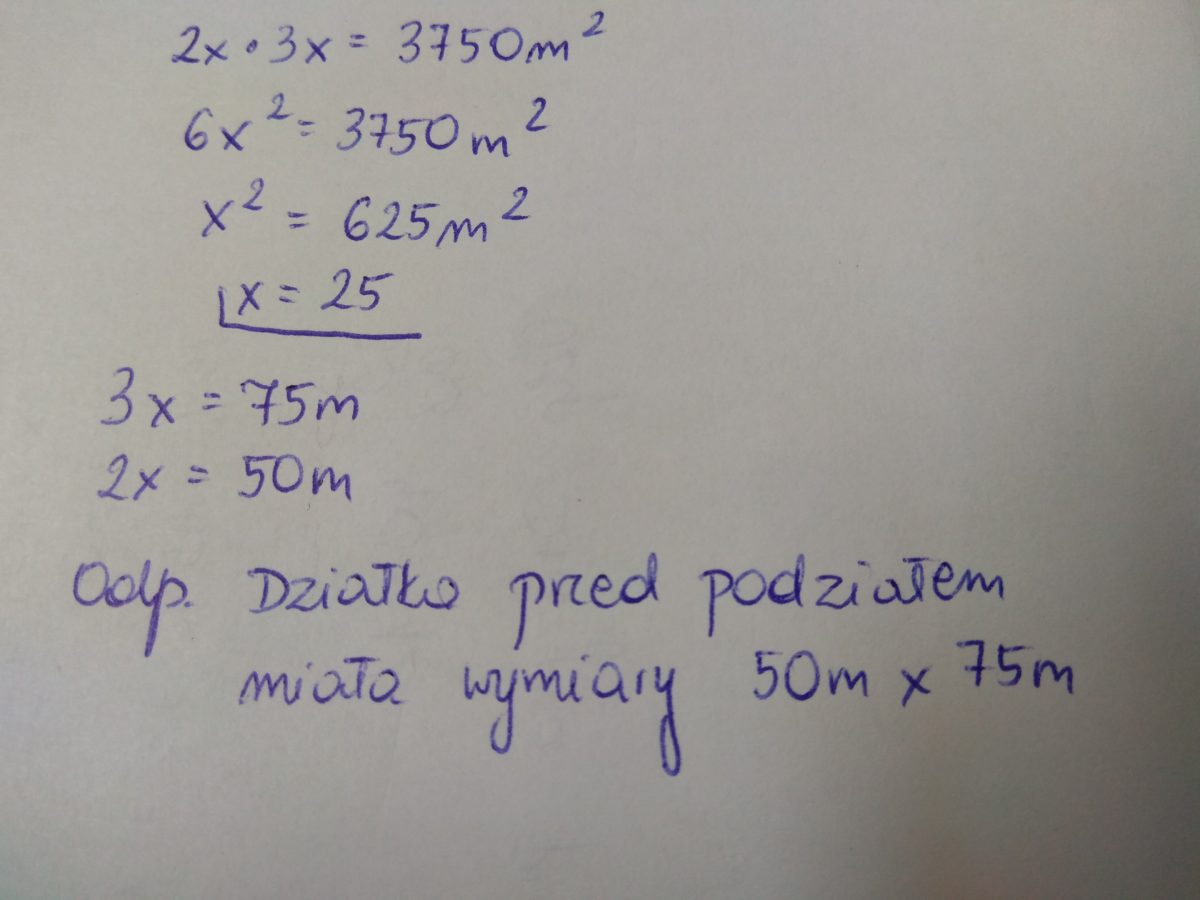 2x · 3x = 3750m²
6x² = 3750m²
x² = 625m²
x = 25
3x = 75m
2x = 50m
Odp. Działka przed podziałem
miała wymiary 50m x 75m